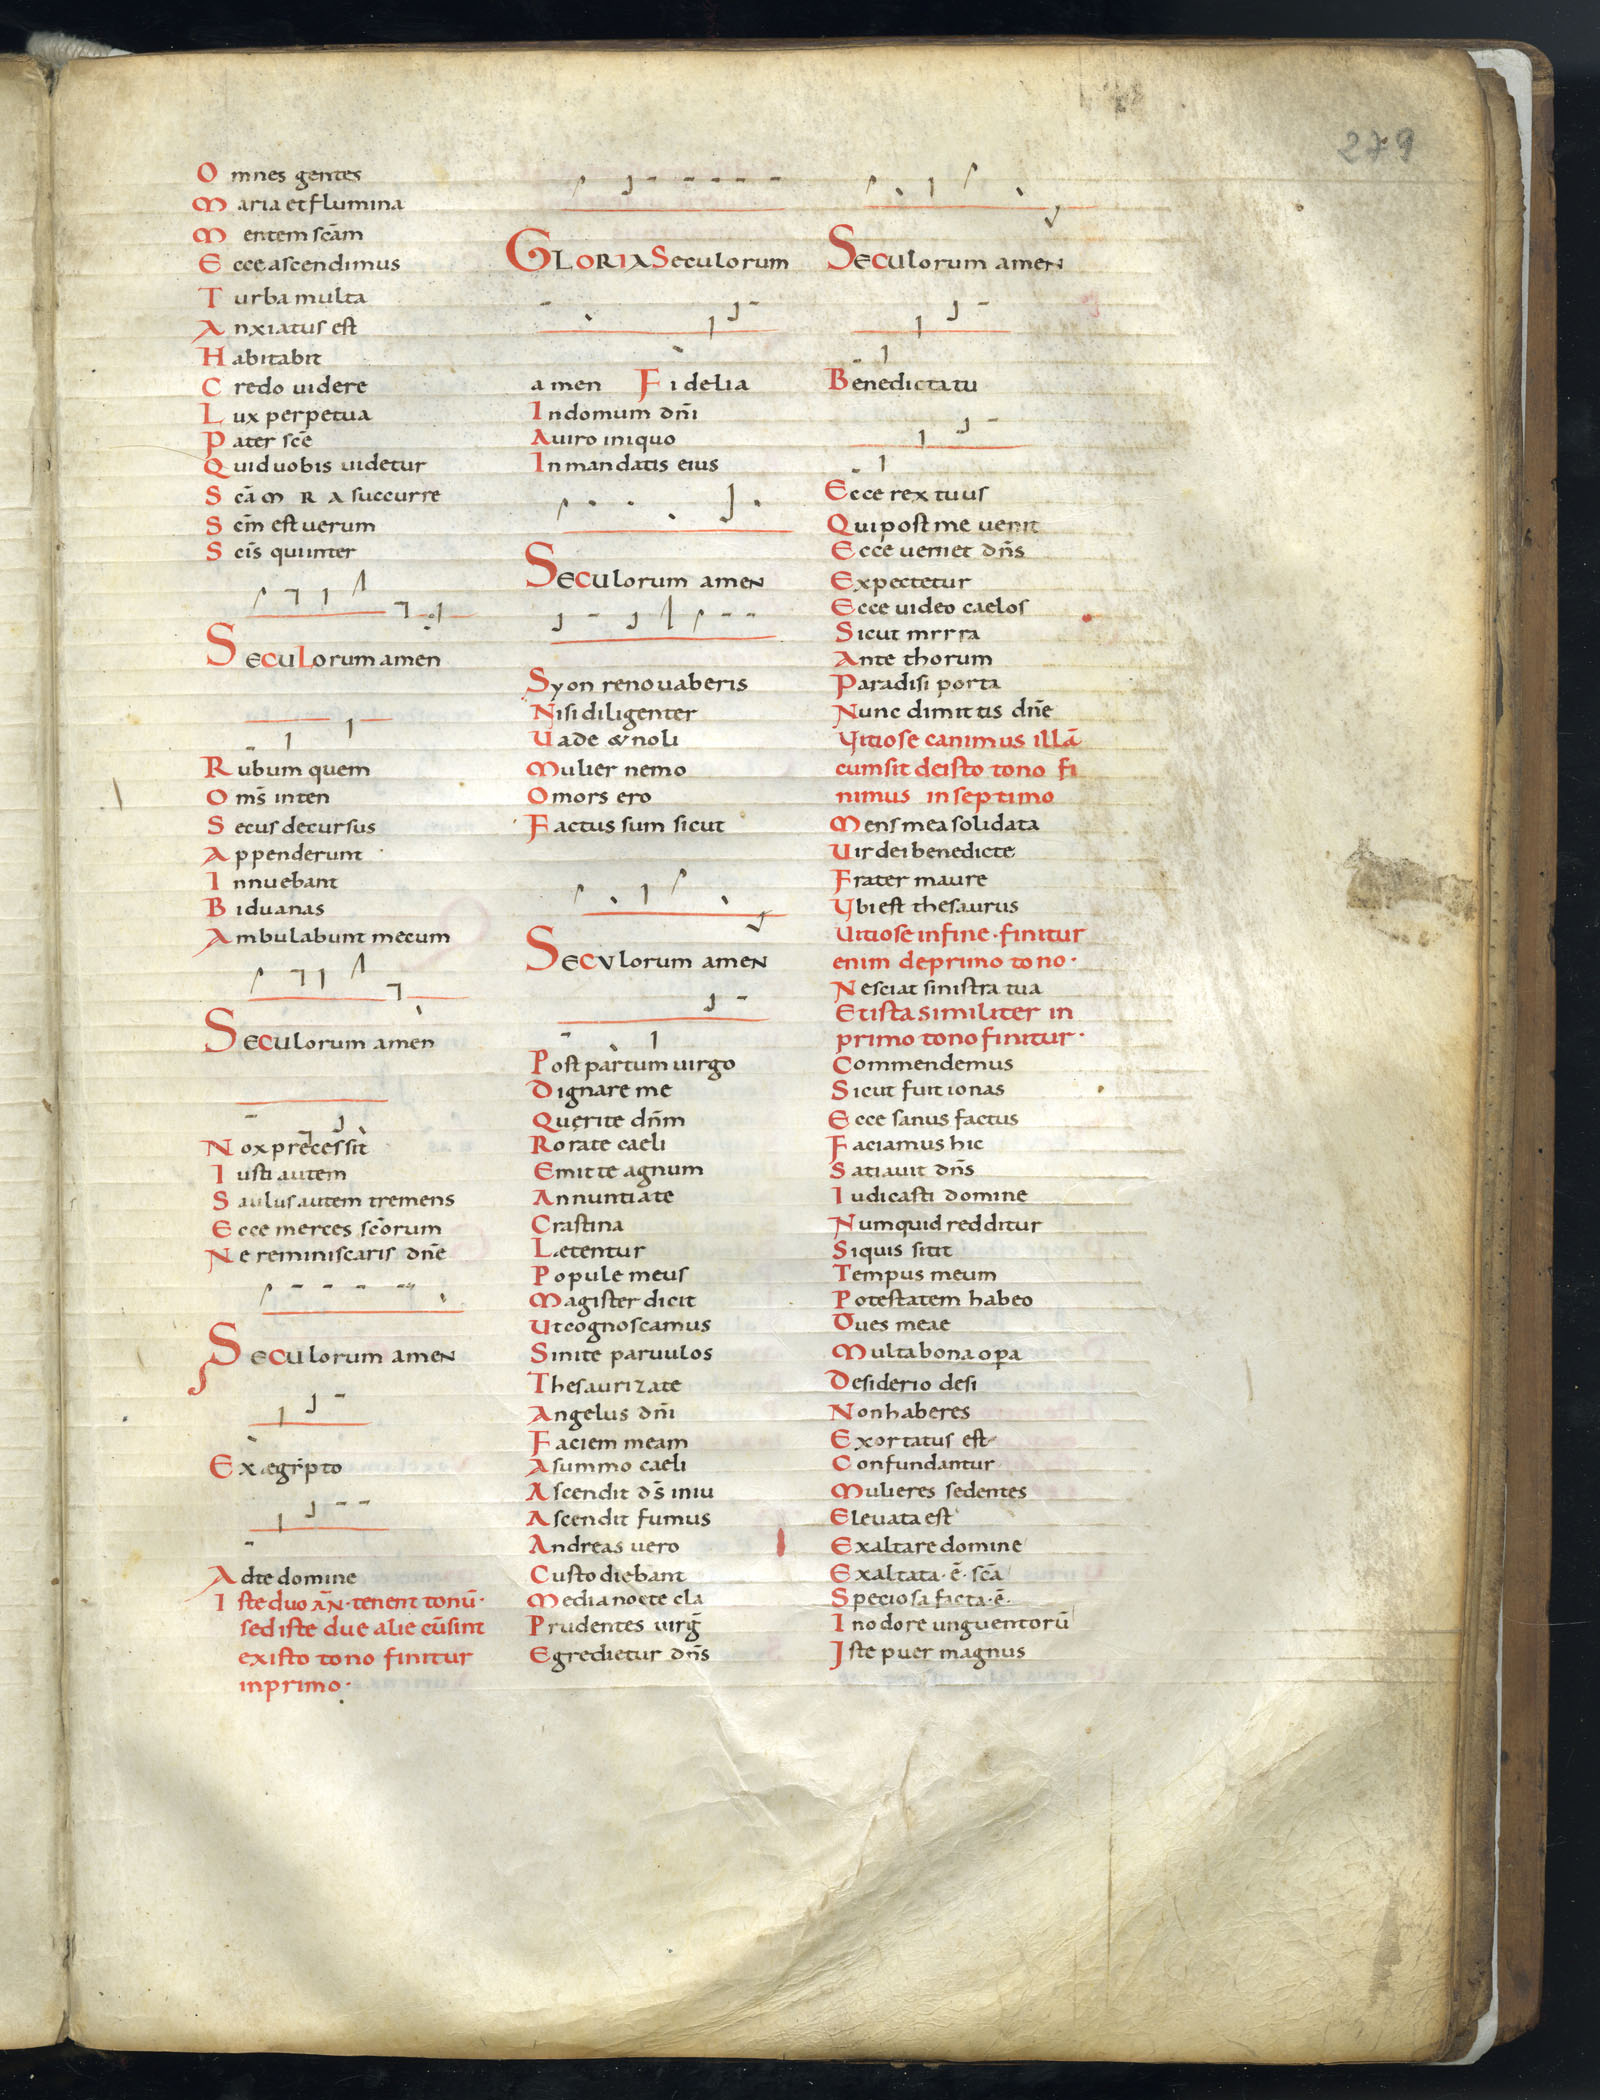 279
Omnes gentes
Maria et flumina
Mentem scām
Ecce ascendimus
Turba multa
Anxiatus est
Habitabit
Credo uidere
Lux perpetua
Pater scē
Quid uobis uidetur
Scā M R A succurre
Scīn est uerum
Scīs qui inter
Seculorum amen
Rubum quem
Oms̄ inten
Secus decursus
Appenderunt
Innuebant
Biduanas
Ambulabunt mecum
Seculorum amen
Nox precessit
Iusti autem
Saulus autem tremens
Ecce merces scōrum
Ne reminiscaris dn̄e
Seculorum amen
Ex ægipto
Ad te domine
Iste duo ĀN · tenent tonū ·
sed iste due alie cūsint
ex isto tono finitur
in primo ·
GLORIA Seculorum
amen Fidelia
In domum dn̄i
A uiro iniquo
In mandatis eius
Seculorum amen
Syon renouaberis
Nisi diligenter
Uade & noli
Mulier nemo
O mors ero
Factus sum sicut
Secvlorum amen
Post partum uirgo
Dignare me
Querite dn̄m
Rorate caeli
Emitte agnum
Annuntiate
Crastina
Lætentur
Popule meus
Magister dicit
Ut cognoscamus
Sinite paruulos
Thesaurizate
Angelus dn̄i
Faciem meam
A summo caeli
Ascendit ds̄ iniu
Ascendit fumus
Andreas uero
Custodiebant
Media nocte cla
Prudentes uirḡ
Egredietur dn̄s
Seculorum amen
Benedicta tu
Ecce rex tuus
Qui post me uenit
Ecce ueniet dn̄s
Expectetur
Ecce uideo caelos
Sicut mrrra
Ante thorum
Paradisi porta
Nunc dimittis dn̄e
Vitiose canimus illā
cum sit de isto tono fi
nimus in septimo
Mens mea solidata
Uir dei benedicte
Frater maure
Vbi est thesaurus
Uitiose in fine · finitur
enim de primo tono ·
Nesciat sinistra tua
Et ista similiter in
primo tono finitur ·
Commendemus
Sicut fuit ionas
Ecce sanus factus
Faciamus hic
Satiauit dn̄s
Iudicasti domine
Numquid redditur
Siquis sitit
Tempus meum
Potestatem habeo
Oues meae
Multa bona opa
Desiderio desi
Non haberes
Exortatus est
Confundantur
Mulieres sedentes
Eleuata est
Exaltare domine
Exaltata · ē · scā
Speciosa facta · ē ·
In odore unguentorū
Iste puer magnus